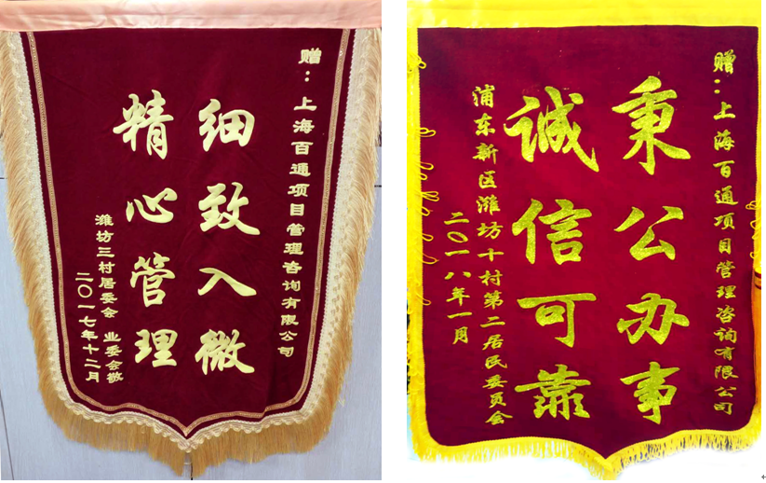 赠：上海百通项目管理咨询有限公司
细致入微
精心管理
潍坊三村居委会 业委会敬
二〇一七年十二月
赠：上海百通项目管理咨询有限公司
秉公办事
诚信可靠
浦东新区潍坊十村第二居民委员会
二〇一八年一月